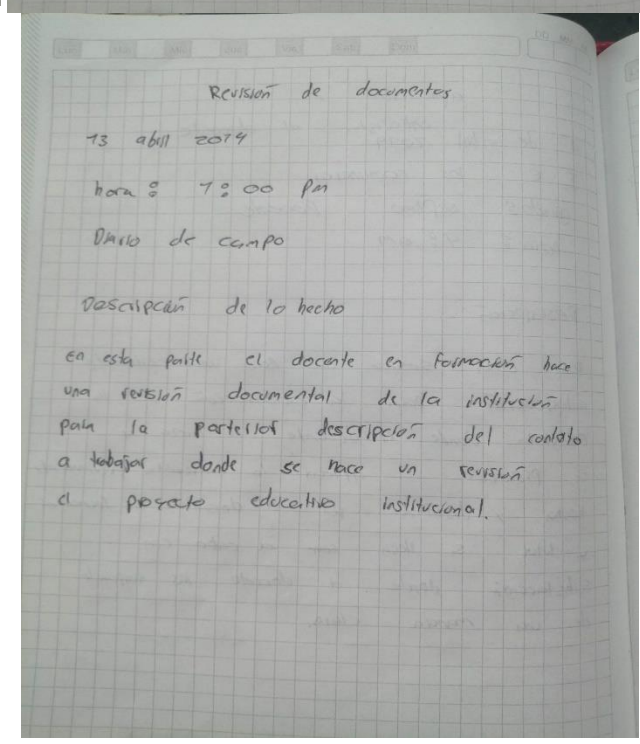 Revisión de documentos
13 abril 2019
hora: 1:00 pm
Diario de campo
Descripción de lo hecho
en esta parte el docente en formación hace
una revisión documental de la institución
para la parterior descripción del contexto
a trabajar donde se hace un revisión
el proyecto educativo institucional.